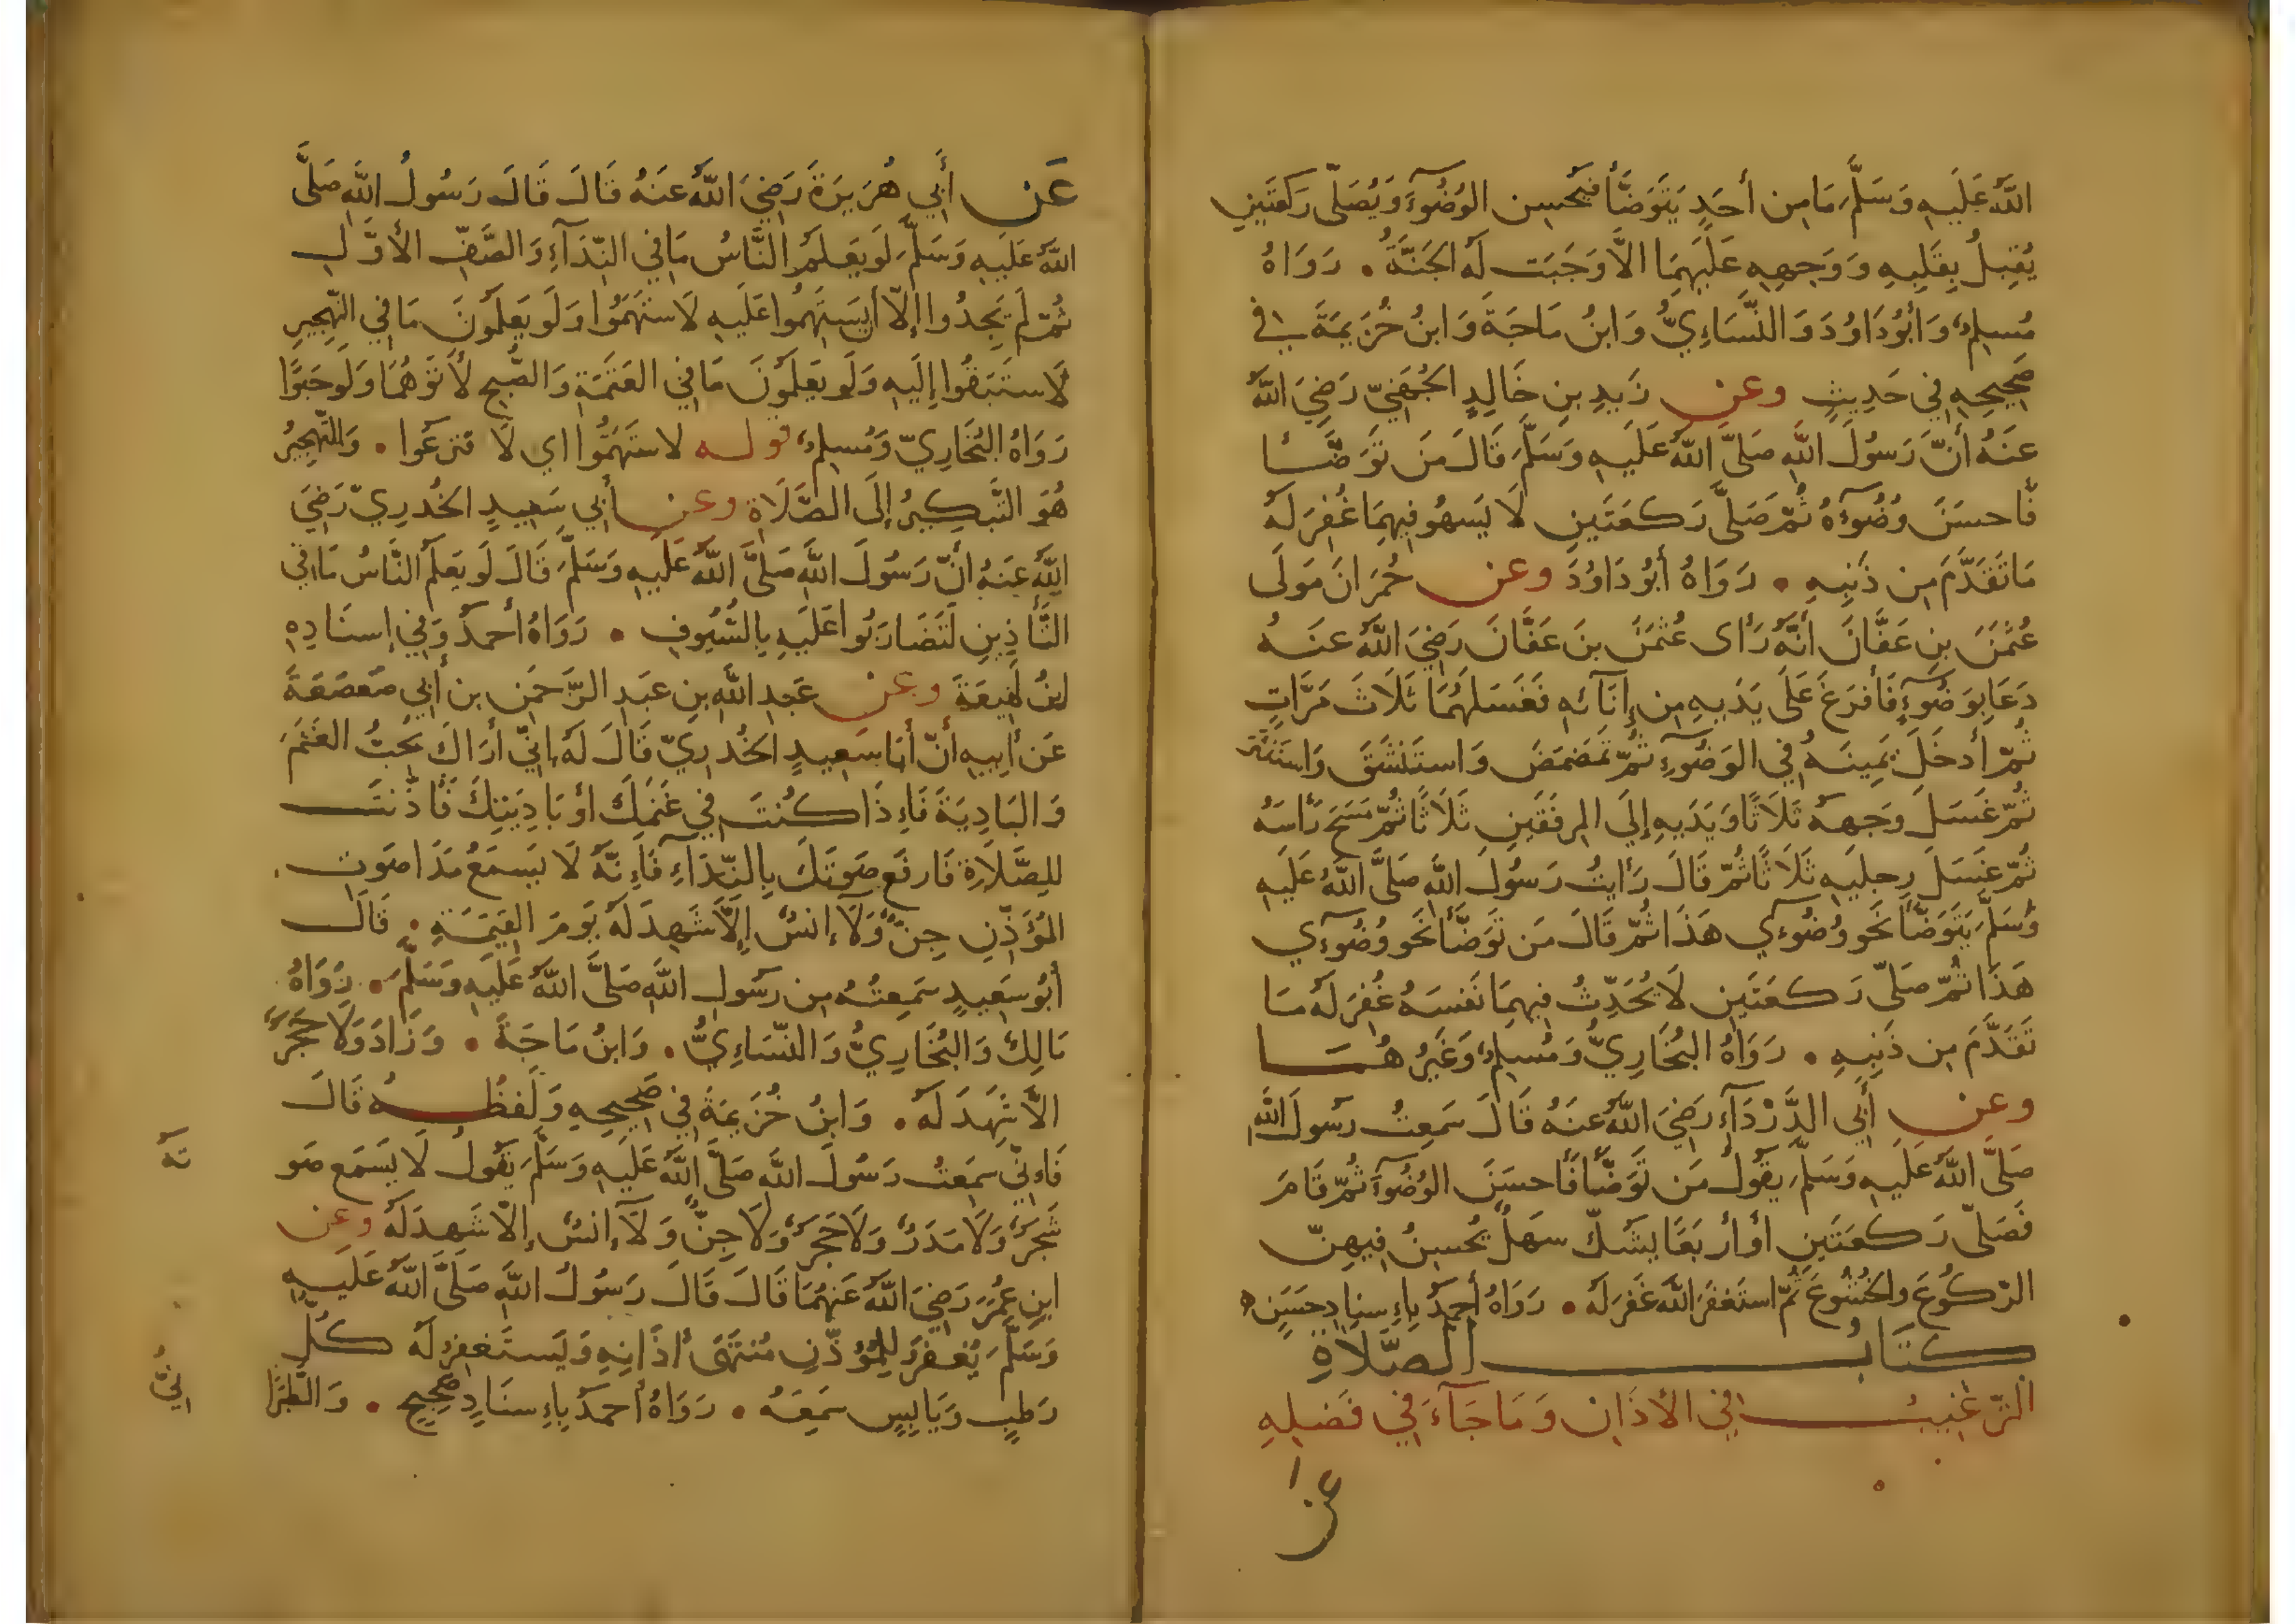 اللَّهُ عَلَيهِ وَسَلَّمَ مَا مِن أَحَدٍ يَتَوَضَّأُ فَيُحسِن الوُضُوءَ وَيُصَلّى رَكعَتَينِ
يُقبِلُ بِقَلبِهِ وَوَجهِهِ عَلَيهِمَا الَّا وَجَبَت لَهُ الجَنَّةُ . رَوَاهُ
مُسلِمٌ وَأَبُو دَاوُدَ وَالنَّسَاءِيُّ وَابنُ مَاجَةَ وَابنُ خُزَيمَةَ في
صَحِيحِهِ فِي حَدِيثٍ وعن زَيدِ بنِ خَالِدٍ الجُهَنِيّ رَضِيَ اللَّهُ
عَنهُ أَنَّ رَسُولَ اللَّهِ صَلَّى اللَّهُ عَلَيهِ وَسَلَّمَ قَالَ مَن تَوَضَّأ
فَأحسَنَ وُضُوءَهُ ثُمّ صَلَّى رَكعَتَينِ لَا يَسهُو فِيهِمَا غُفِرَ لَهُ
مَا تَقَدَّمَ مِن ذَنبِهِ . رَوَاهُ أَبُو دَاوُدَ وعن حُمرَانَ مَولَى
عُثمٰنَ بنِ عَفَّانَ أنَّهُ رَأى عُثمٰنَ بنَ عَفَّانَ رَضِيَ اللَّهُ عنَهُ
دَعَا بِوَضُوءٍ فَأفرَغَ عَلَى يَدَيهِ مِن إِنَآئهِ فَغَسَلَهُمَا ثَلَاثَ مَرَّاتٍ
ثُمّ أدخَلَ يَمِينَهُ فِي الوَضُوءِ ثُمّ تَمَضمَضَ وَاستَنشَقَ وَاستَنثَرَ
ثُمّ غَسَلَ وَجهَهُ ثَلَاثًا وَيَدَيهِ إِلَى المِرفَقَينِ ثَلَاثًا ثُمّ مَسَحَ رَأسَهُ
ثُمّ غَسَلَ رِجلَيهِ ثَلَاثًا ثُمّ قَالَ رَأيتُ رَسُولَ اللَّهِ صَلَّى اللَّهُ عَلَيهِ
وَسَلَّمَ يَتَوَضَّأُ نَحوَ وُضُوءِي هَذَا ثُمّ قَالَ مَن تَوَضَّأَ نَحوَ وُضُوءِي
هَذَا ثُمّ صَلّى رَكعَتَينِ لَا يُحَدِّثُ فِيهِمَا نَفسَهُ غُفِرَ لَهُ مَا
تَقَدَّمَ مِن ذَنبِهِ . رَوَاهُ البُخَارِيُّ وَمُسلِمٌ وَغَيرُهُمَا
وعن أَبِي الدَّرْدَآءِ رَضِيَ اللَّهُ عَنهُ قَالَ سَمِعتُ رسُولَ اللَّهِ
صَلَّى اللَّهُ عَلَيهِ وَسَلَّمَ يَقُولُ مَن تَوَضَّأ فَأحسَنَ الوُضُوءَ ثُمّ قَامَ
فَصَلّى رَكعَتَينِ أو أربَعًا يَشُكّ سَهلٌ يُحسِنُ فِيهِنّ
الرّكُوعَ وَالخُشُوعَ ثُمّ استَغفَرَ اللَّهَ غَفَرَ لَهُ . رَوَاهُ أحمَدُ بِاءِسنِادٍ حَسَنٍ
كتَابُ الصَّلَاةِ
الترّغيبُ فِي الأذَانِ وَمَا جَآءَ فِي فَضلِهِ
عن
عَن أَبِي هُرَيرَةَ رَضِيَ اللَّهُ عَنهُ قَالَ قَالَ رَسُولُ اللَّهِ صَلَّى
اللَّهُ عَلَيهِ وَسَلَّمَ لَو يَعلَمُ النَّاسُ مَا فِي النِّدَآءِ وَالصَّفِّ الأوَّلِ
ثُمّ لَم يَجِدُوا إلّا أن يَستَهِمُوا عَلَيهِ لَاستَهَمُوا وَلَو يَعلَمُونَ مَا فِي التّهجِيرِ
لَاستَبَقُوا إِلَيهِ وَلَو يَعلَمُونَ مَا فِي العَتَمَةِ وَالصُّبحِ لَأتَوهُمَا وَلَو حَبوًا
رَوَاهُ البُخَارِيّ وَمُسلِمٌ قوله لاستَهَمُوا اي لَا قترعُوا . وَالتّهجِيرُ
هُوَ التَّبكِيرُ إلَى الصَّلَاةِ وعن أَبِي سَعِيدٍ الخُدرِيّ رَضِيَ
اللَّهُ عَنهُ أنّ رَسُولَ اللَّهِ صَلَّى اللَّهُ عَلَيهِ وَسَلَّمَ قَالَ لَو يَعلَمُ النَّاسُ مَا فِي
التَّأذِينِ لَتَضَارَبُوا عَلَيهِ بِالسُّيُوفِ . رَوَاهُ أحمدُ وَفِي إسنَادِهِ
ابنُ لَهِيعَةَ وعن عَبدِ اللَّهِ بنِ عَبدِ الرَّحمَنِ بن أَبِي صَعصَعَةَ
عَن أبِيهِ أنّ أبَا سَعِيدٍ الخُدرِيّ قَالَ لَهُ إنِيّ أرَاكَ تُحِبُّ الغَنَمَ
وَالبَادِيَةَ فَاءِذَا كُنتَ فِي غَنَمِكَ أو بَادِيَتِكَ فَأذّنتَ
لِلصَّلَاةِ فَارفَع صَوتَكَ بِالنِّدَآءِ فَاءِنَّهُ لَا يَسمَعُ مَدَا صَوتِ
المُؤَذّنِ جِنٌّ وَلَآ إنسٌ إلَّا شَهِدَ لَهُ يَومَ القِيٰمَةِ . قَالَ
أَبُو سَعِيدٍ سَمِعتُهُ مِن رَسُولِ اللَّهِ صَلَّى اللَّهُ عَلَيهِ وَسَلَّمَ . رَوَاهُ
مَالِكٌ وَالبُخَارِيُّ وَالنّسَاءِيُّ . وَابنُ مَاجَةَ . وَزَادَ وَلَا حَجَرٌ
الَّا شَهِدَ لَهُ . وَابنُ خُزَيمَةَ فِي صَحِيحِهِ وَلَفظُهُ قَالَ
فَاءِنِّي سَمِعتُ رَسُولَ اللَّهِ صَلَّى اللَّهُ عَلَيهِ وَسَلَّمَ يَقُولُ لَا يَسمَع صَو
تَهُ
شَجَرٌ وَلَا مَدَرٌ وَلَا حَجَرٌ وَلَا جِنٌّ وَلَآ إنسٌ إلَّا شَهِدَ لَهُ وعن
ابنِ عُمَرَ رَضِيَ اللَّهُ عَنهُمَا قَالَ قَالَ رَسُولُ اللَّهِ صَلَّى اللَّهُ عَلَيهِ
وَسَلَّمَ يُغفَرُ لِلمُؤذّنِ مُنتَهَى أذَانِهِ وَيَستَغفِرُ لَهُ كُلّ
رَطبٍ وَيَابِسٍ سَمِعَهُ . رَوَاهُ أحمدُ بِاءِسنَادٍ صَحِيحٍ . وَالطَّبَرَا
نِيُّ